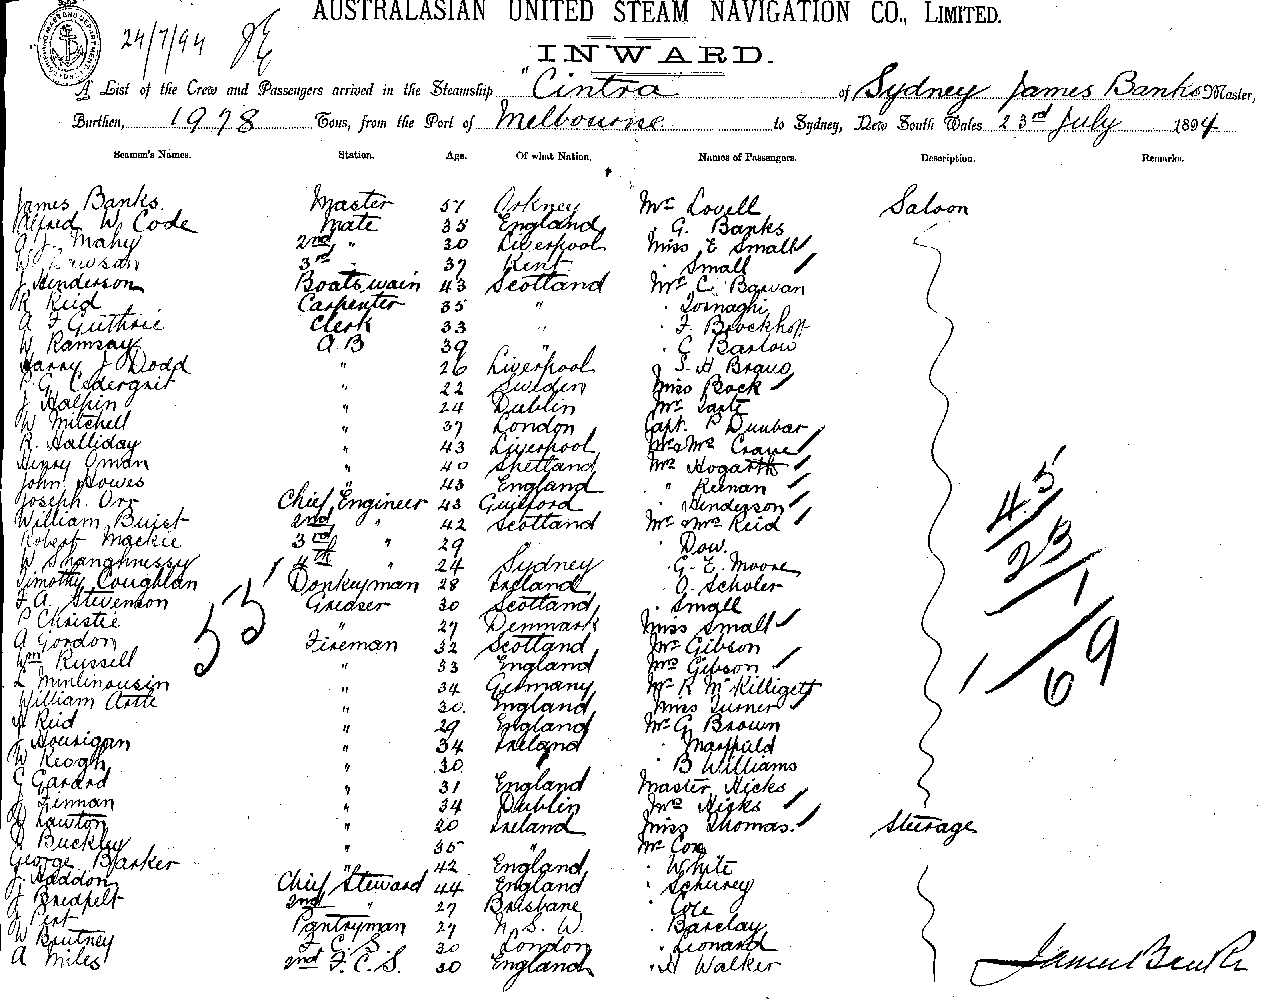 AUSTRALASIAN UNITED STEAM NAVIGATION CO., LIMITED.
24/7/94
INWARD.
A List of the Crew and Passengers arrived in the Steamship "Cintra of Sydney James Banks Master,
Burthen, 1978 Tons, from the Port of Melbourne to Sydney, New South Wales 23rd July 1894
Seamen's Names. Station. Age. Of what Nation. Names of Passengers. Description. Remarks.
James Banks. Master 57 Orkney Mr Lovell Saloon
Alfred W Code Mate 35 England . G. Banks
A J. Mahy 2nd " 30 Liverpool Miss E Small
W Dawson 3rd . 37 Kent . Small
J Henderson Boatswain 43 Scotland Mr C. Barvan
R Reid Carpenter 35 "
A F Guthrie Clerk 33 " . F. Brockhoff
W Ramsay A B 39 " . C Barlow
Harry J Dodd " 26 Liverpool
P. G. Cedergrit " 22 Sweden Miss Bock
J Halpin " 24 Dublin Mr
W Mitchell " 37 London Capt. P Dunbar
R. Halliday " 43 Liverpool Mr & Mrs Crane
Henry Oman " 40 Shetland Mrs Hogarth
John Howes " 43 England " Keenan
Joseph Orr Chief Engineer 43 Guilford . Henderson
William Buist 2nd " 42 Scotland Mr & Mrs Reid
Robert Mackie 3rd " 29 . Dow.
W Shanghnessy 4th 24 Sydney . G. E. Moore
Timothy Coughlan Donkeyman 28 Ireland . O. Scholer
F. A. Stevenson Greaser 30 Scotland . Small
P Christie " 27 Denmark Miss Small
A Gordon Fireman 32 Scotland Mr Gibson
Wm Russell " 33 England Mrs Gibson
L Minlinousin " 34 Germany Mr R McKilligett
William Astie " 30 England Miss Turner
A Reid " 29 England Mr G Brown
J Hourigan " 34 Ireland .
W Keogh " 30 " . B Williams
C Gavard " 31 England Master Hicks
J Linnan " 34 Dublin Mrs Hicks
Lawton " 20 Ireland Miss Thomas. Steerage
Buckley " 35 " Mr Cox
George Barker " 42 England . White
J. Haddon Chief Steward 44 England .
J Bredfelt 2nd " 27 Brisbane . Cole
J Port Pantryman 27 N. S. W. . Barclay
W Brutney F. C. S. 30 London . Leonard
A Miles 2nd F. C. S. 30 England . A Walker
55
45
23
1
1/69
James Banks